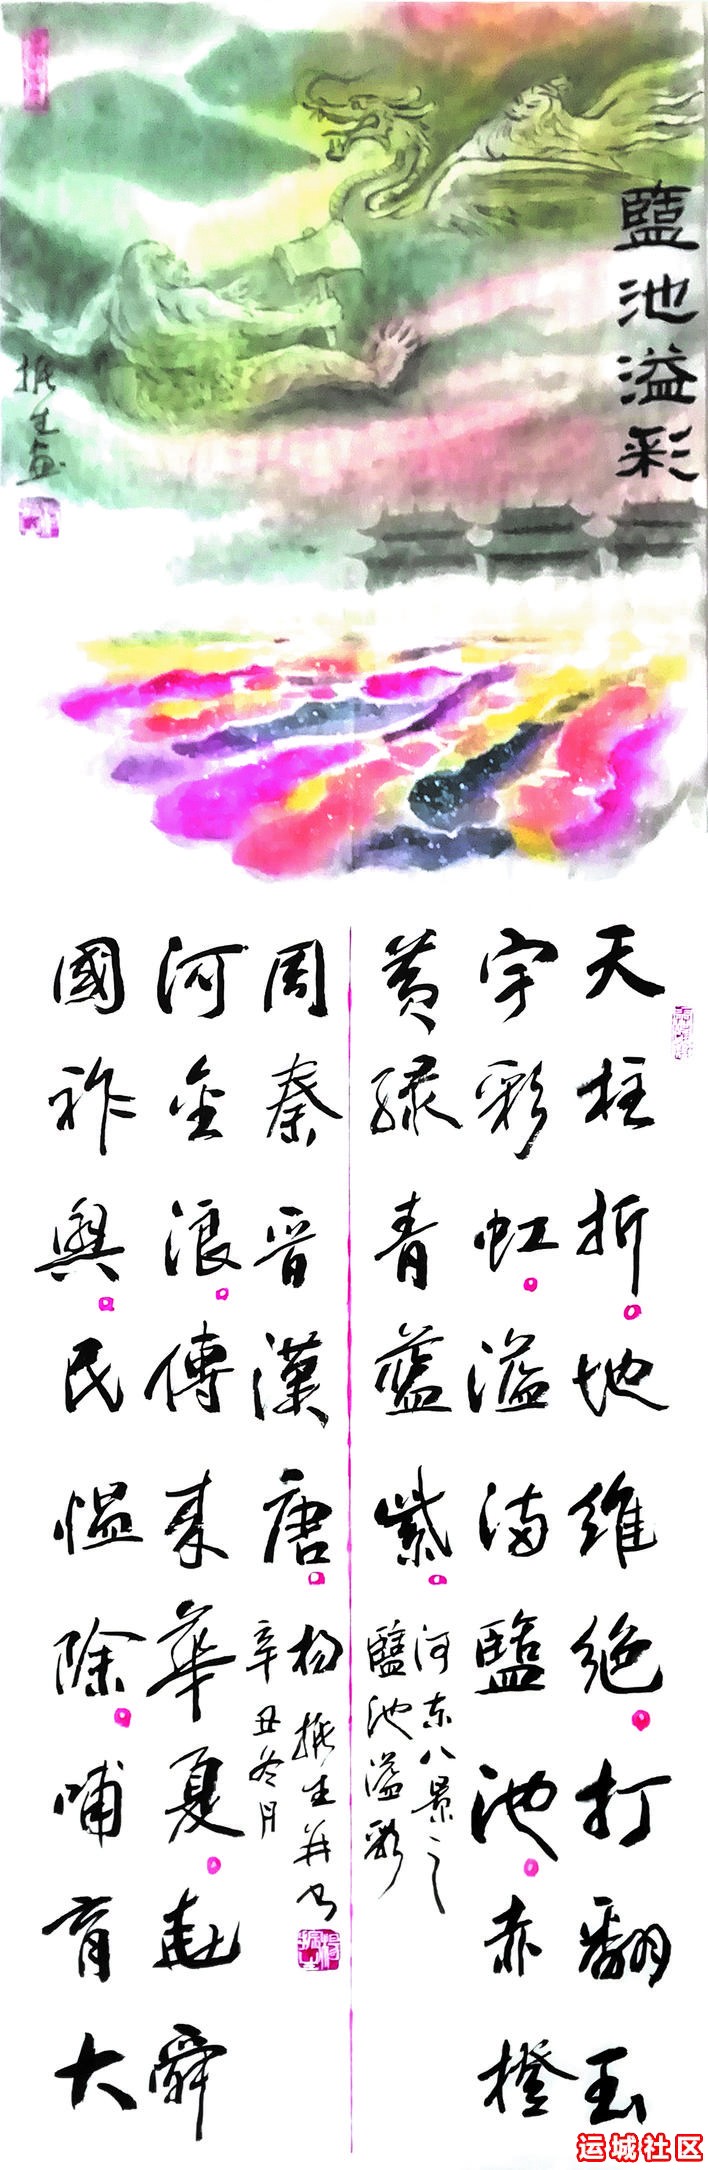 鹽池溢彩
振生画
天柱折地維絶打翻玉
宇彩虹溢满鹽池赤橙
黄緑青藍紫
河东八景之
鹽池溢彩
國祚興民愠除哺育大
河金浪傳承華夏堯舜
周秦晋漢唐
辛丑冬月
杨振生并书
运城社区